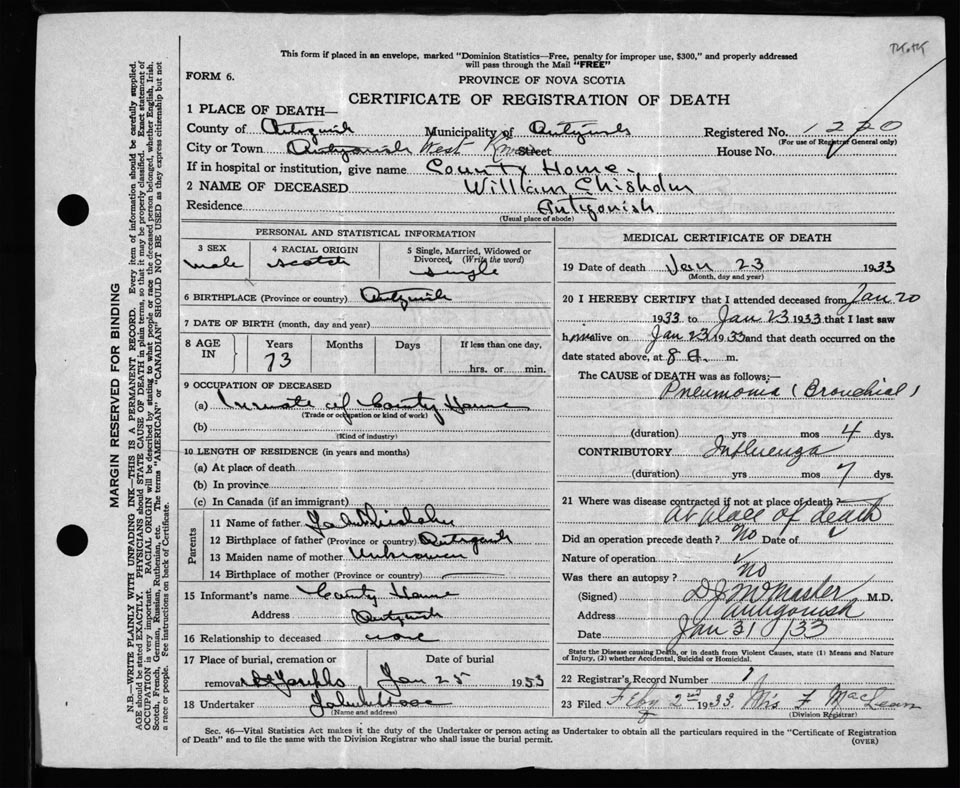 This form if placed in an envelope, marked "Dominion Statistics—Free, penalty for improper use, $300," and properly addressed
will pass through the Mail "FREE"
FORM 6.
PROVINCE OF NOVA SCOTIA
CERTIFICATE OF REGISTRATION OF DEATH
1 PLACE OF DEATH—
County of Antigonish Municipality of Antigonish Registered No. 1220
(For use of Registrar General only)
City or Town Antigonish West River Street House No.
If in hospital or institution, give name County Home.
2 NAME OF DECEASED William Chisholm
Residence Antigonish
(Usual place of abode)
PERSONAL AND STATISTICAL INFORMATION
3 SEX 4 RACIAL ORIGIN 5 Single, Married, Widowed or
Divorced, (Write the word)
male scotch single
6 BIRTHPLACE (Province or country) Antigonish
7 DATE OF BIRTH (month, day and year)
8 AGE IN Years Months Days If less than one day,
73 hrs. or min.
9 OCCUPATION OF DECEASED
(a) Inmate of County Home
(Trade or occupation or kind of work)
(b)
(Kind of industry)
10 LENGTH OF RESIDENCE (in years and months)
(a) At place of death
(b) In province
(c) In Canada (if an immigrant)
Parents
11 Name of father John Chisholm
12 Birthplace of father (Province or country) Antigonish
13 Maiden name of mother Unknown
14 Birthplace of mother (Province or country)
15 Informant's name County Home
Address Antigonish
16 Relationship to deceased none
17 Place of burial, cremation or Date of burial
removal Jan 25 1933
18 Undertaker John
(Name and address)
MEDICAL CERTIFICATE OF DEATH
19 Date of death Jan 23 1933
(Month, day and year)
20 I HEREBY CERTIFY that I attended deceased from Jan 20
1933 to Jan 23 1933 that I last saw
him alive on Jan 23 1933 and that death occurred on the
date stated above, at 8 A. m.
The CAUSE OF DEATH was as follows:
Pneumonia (Bronchial)
(duration) yrs mos 4 dys.
CONTRIBUTORY Influenza
(duration) yrs mos 7 dys.
21 Where was disease contracted if not at place of death?
At place of death
Did an operation precede death? No Date of
Nature of operation
Was there an autopsy? No
(Signed) D J McMaster M.D.
Address Antigonish
Date Jan 31 / 33
State the Disease causing Death, or in death from Violent Causes, state (1) Means and Nature
of Injury, (2) whether Accidental, Suicidal or Homicidal.
22 Registrar's Record Number 1
23 Filed Feby 2nd 1933 Mrs F MacLean
(Division Registrar)
Sec. 46—Vital Statistics Act makes it the duty of the Undertaker or person acting as Undertaker to obtain all the particulars required in the "Certificate of Registration
of Death" and to file the same with the Division Registrar who shall issue the burial permit.
(OVER)
MARGIN RESERVED FOR BINDING
N.B.—WRITE PLAINLY WITH UNFADING INK—THIS IS A PERMANENT RECORD. Every item of information should be carefully supplied.
AGE should be stated EXACTLY. PHYSICIANS should STATE CAUSE OF DEATH in plain terms, so that it may be properly classified. Exact statement of
OCCUPATION is very important. RACIAL ORIGIN will be described by stating to what people or race the deceased person belonged, whether English, Irish,
Scotch, French, German, Russian, Ruthenian, etc. The terms "AMERICAN" or "CANADIAN" SHOULD NOT BE USED as they express citizenship but not
a race or people. See instructions on back of Certificate.